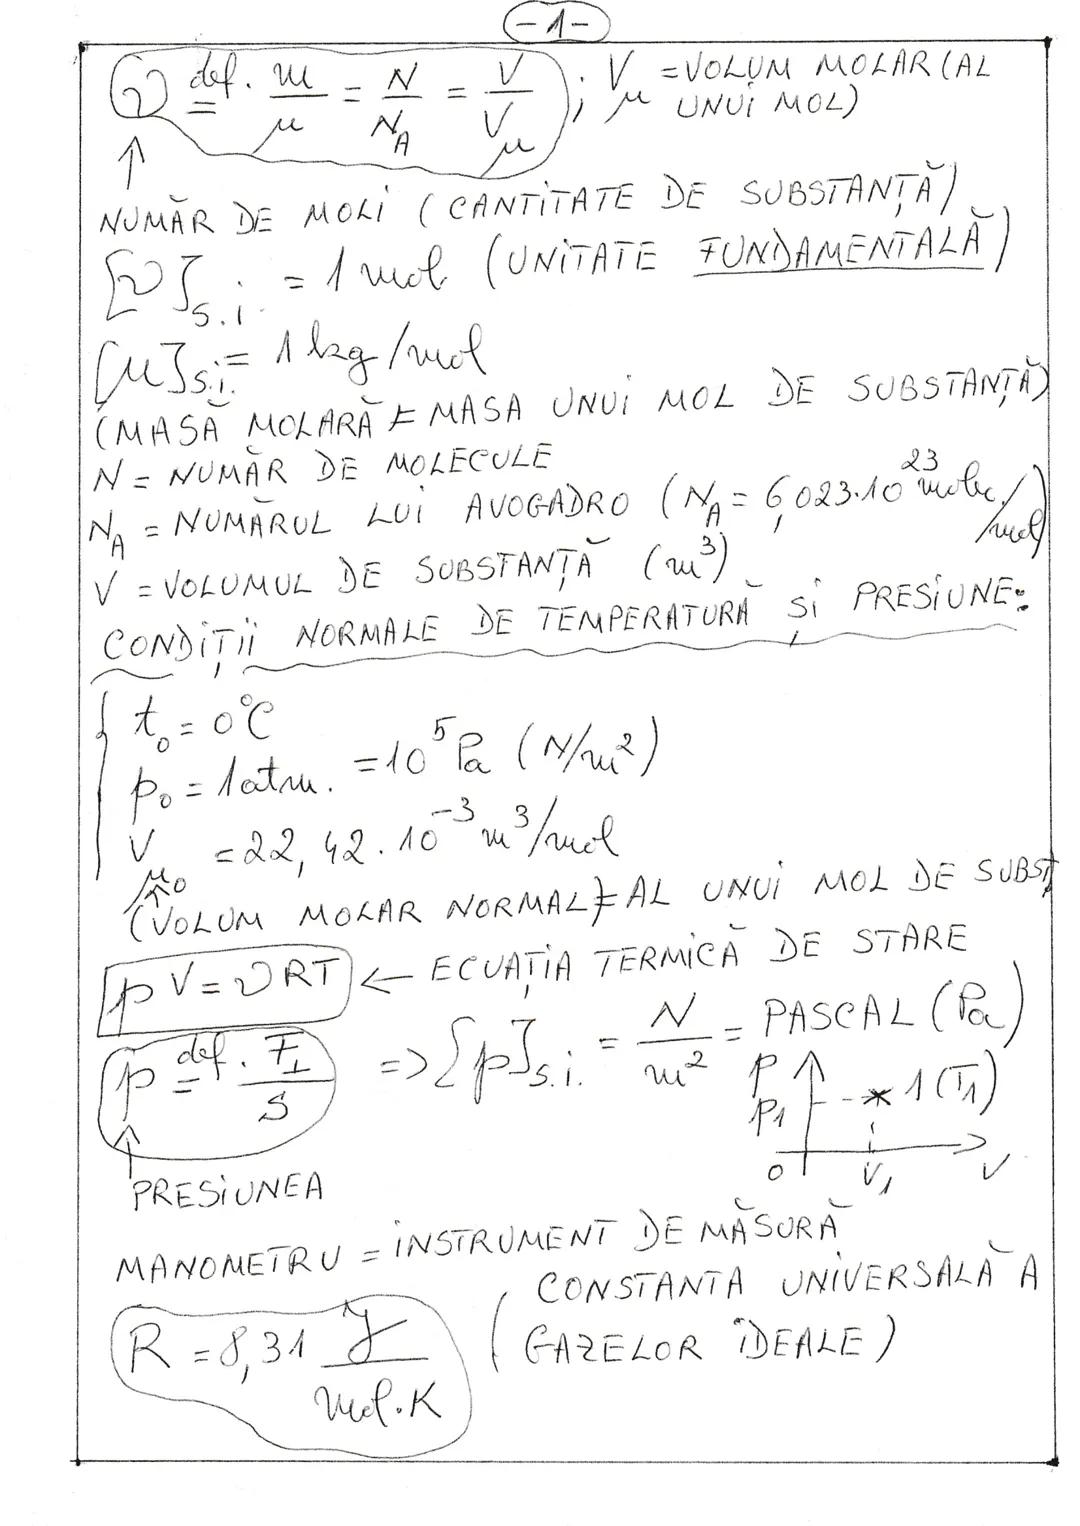 -1-
ν def.= m/μ = N/N_A = V/V_μ ; V_μ = VOLUM MOLAR (AL UNUI MOL)
↑
NUMĂR DE MOLI (CANTITATE DE SUBSTANȚĂ)
[ν]S.i. = 1 mol (UNITATE FUNDAMENTALĂ)
[μ]S.i. = 1 kg/mol
(MASĂ MOLARĂ) = MASA UNUI MOL DE SUBSTANȚĂ)
N = NUMĂR DE MOLECULE
N_A = NUMĂRUL LUI AVOGADRO (N_A = 6,023·10²³ molec./mol)
V = VOLUMUL DE SUBSTANȚĂ (m³)
CONDIȚII NORMALE DE TEMPERATURĂ ȘI PRESIUNE:
t₀ = 0°C
p₀ = 1atm. = 10⁵ Pa (N/m²)
V_μ₀ = 22,42·10⁻³ m³/mol
↑
(VOLUM MOLAR NORMAL) = AL UNUI MOL DE SUBST
pV = νRT ← ECUAȚIA TERMICĂ DE STARE
p def.= F⊥/S => [p]S.i. = N/m² = PASCAL (Pa)
p
p₁ 1(T₁)
0 V₁ V
↑
PRESIUNEA
MANOMETRU = INSTRUMENT DE MĂSURĂ
R = 8,31 J/mol·K (CONSTANTA UNIVERSALĂ A
GAZELOR IDEALE)